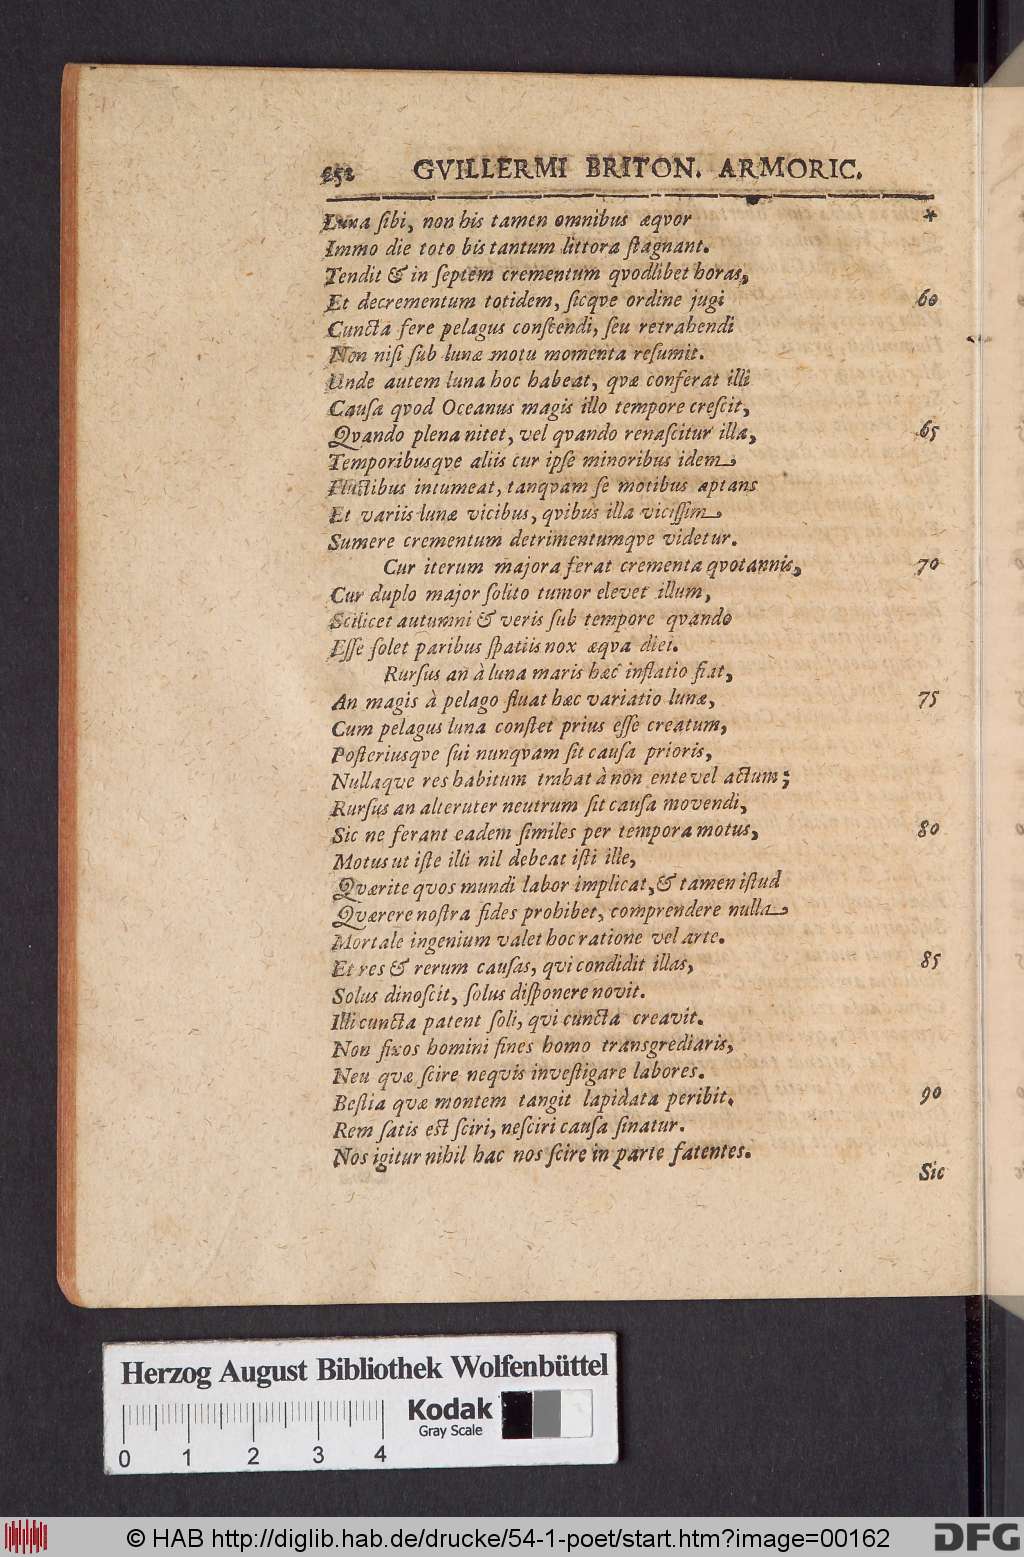 252 GVILLERMI BRITON. ARMORIC.
Luna sibi, non his tamen omnibus æqvor *
Immo die toto bis tantum littora stagnant.
Tendit & in septem crementum qvodlibet horas,
Et decrementum totidem, sicqve ordine jugi 60
Cuncta fere pelagus conscendi, seu retrahendi
Non nisi sub lunæ motu momenta resumit.
Unde autem luna hoc habeat, qvæ conferat illi
Causa qvod Oceanus magis illo tempore crescit,
Qvando plena nitet, vel qvando renascitur illa, 65
Temporibusqve aliis cur ipse minoribus idem
Fluctibus intumeat, tanqvam se motibus aptans
Et variis lunæ vicibus, qvibus illa vicissim
Sumere crementum detrimentumqve videtur.
Cur iterum majora ferat crementa qvotannis, 70
Cur duplo major solito tumor elevet illum,
Scilicet autumni & veris sub tempore qvando
Esse solet paribus spatiis nox æqva diei.
Rursus an à luna maris hæc inflatio fiat,
An magis à pelago fluat hæc variatio lunæ, 75
Cum pelagus luna constet prius esse creatum,
Posteriusqve sui nunqvam sit causa prioris,
Nullaqve res habitum trahat à non ente vel actum;
Rursus an alteruter neutrum sit causa movendi,
Sic ne ferant eadem similes per tempora motus, 80
Motus ut iste illi nil debeat isti ille,
Qværite qvos mundi labor implicat, & tamen istud
Qværere nostra fides prohibet, comprendere nulla
Mortale ingenium valet hoc ratione vel arte.
Et res & rerum causas, qvi condidit illas, 85
Solus dinoscit, solus disponere novit.
Illi cuncta patent soli, qvi cuncta creavit.
Non fixos homini fines homo transgrediaris,
Neu qvæ scire neqvis investigare labores.
Bestia qvæ montem tangit lapidata peribit. 90
Rem satis est sciri, nesciri causa sinatur.
Nos igitur nihil hac nos scire in parte fatentes.
Sic
Herzog August Bibliothek Wolfenbüttel
Kodak
Gray Scale
0 1 2 3 4
© HAB http://diglib.hab.de/drucke/54-1-poet/start.htm?image=00162
DFG